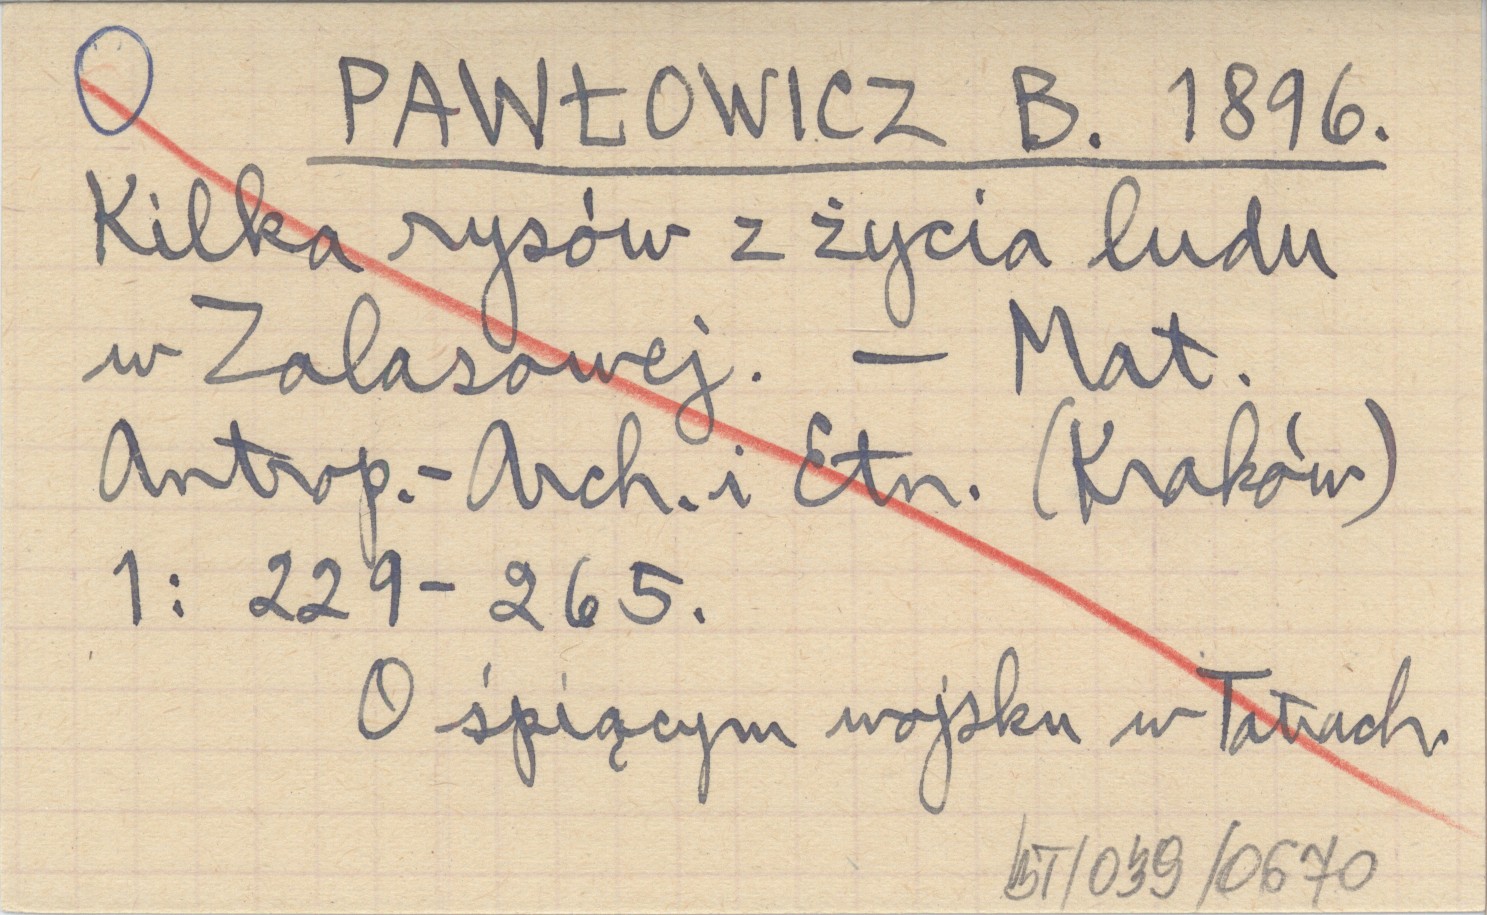 PAWŁOWICZ B. 1896.
Kilka rysów z życia ludu
w Zalasowej. — Mat.
Antrop.-Arch. i Etn. (Kraków)
1: 229-265.
O śpiącym wojsku w Tatrach.
/039/0670